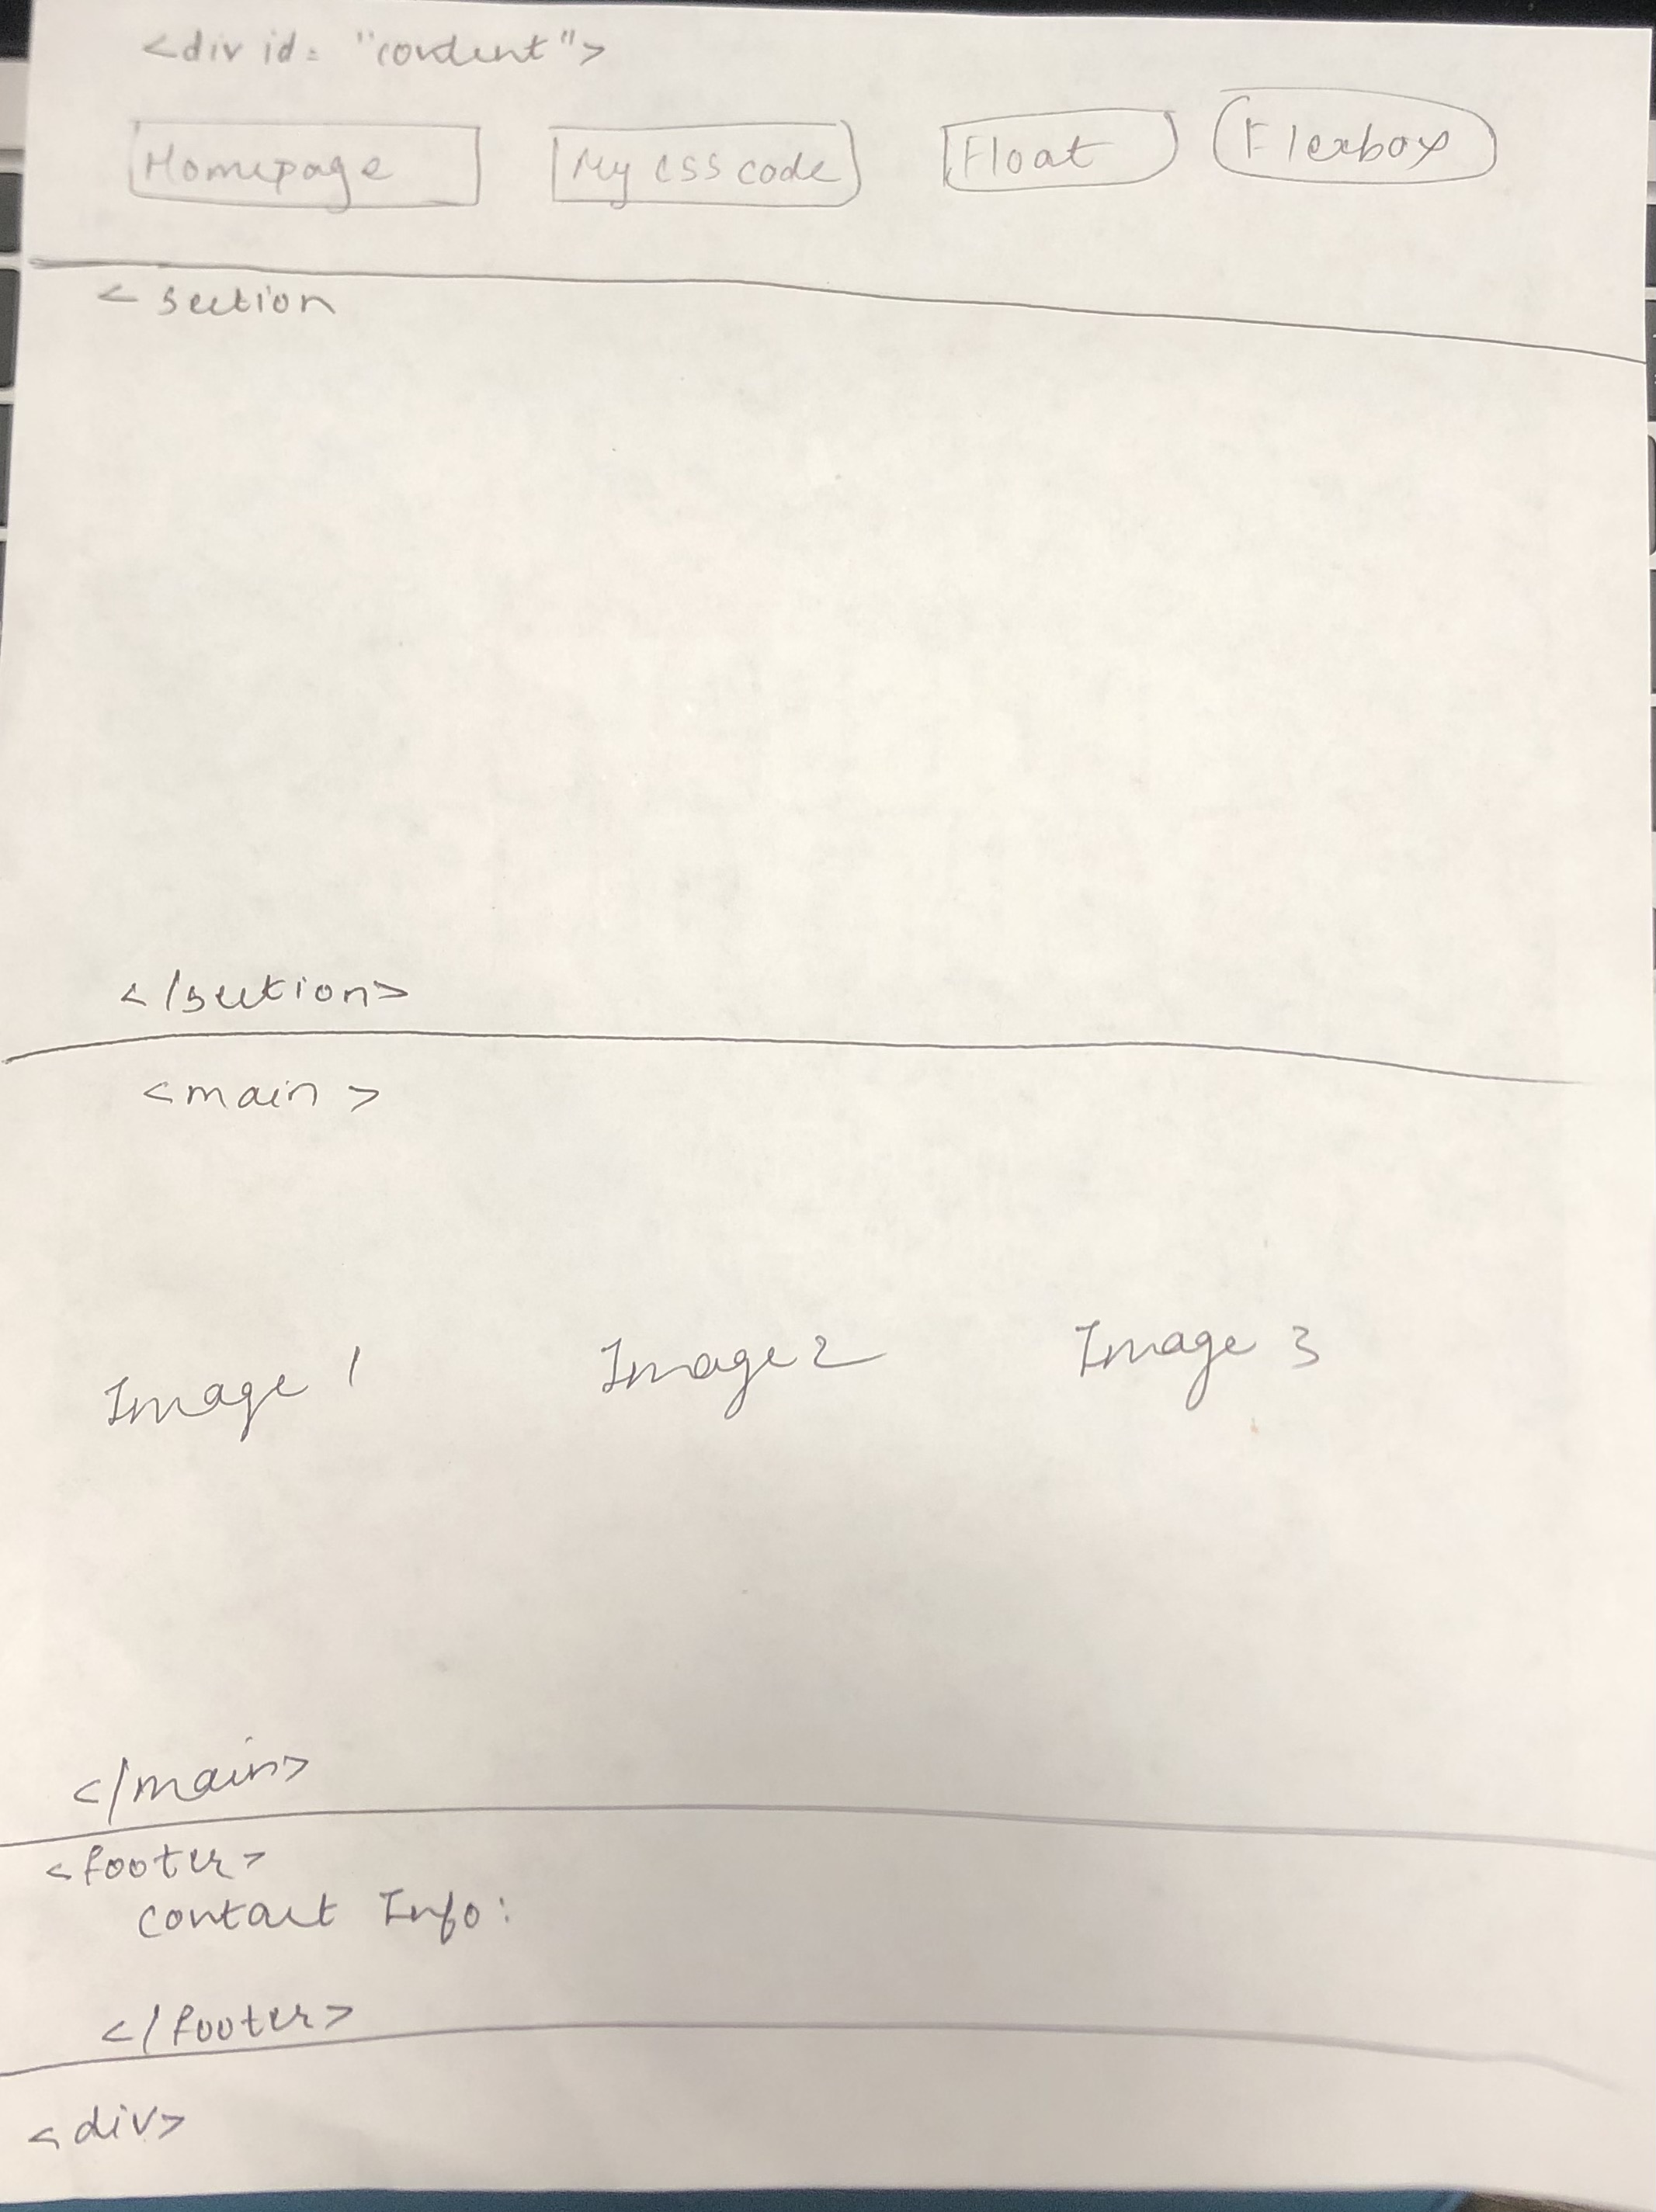 <div id= "content">
Homepage My CSS code Float Flexbox
< section
</section>
<main>
Image 1 Image 2 Image 3
</main>
<footer>
contact Info:
</footer>
<div>